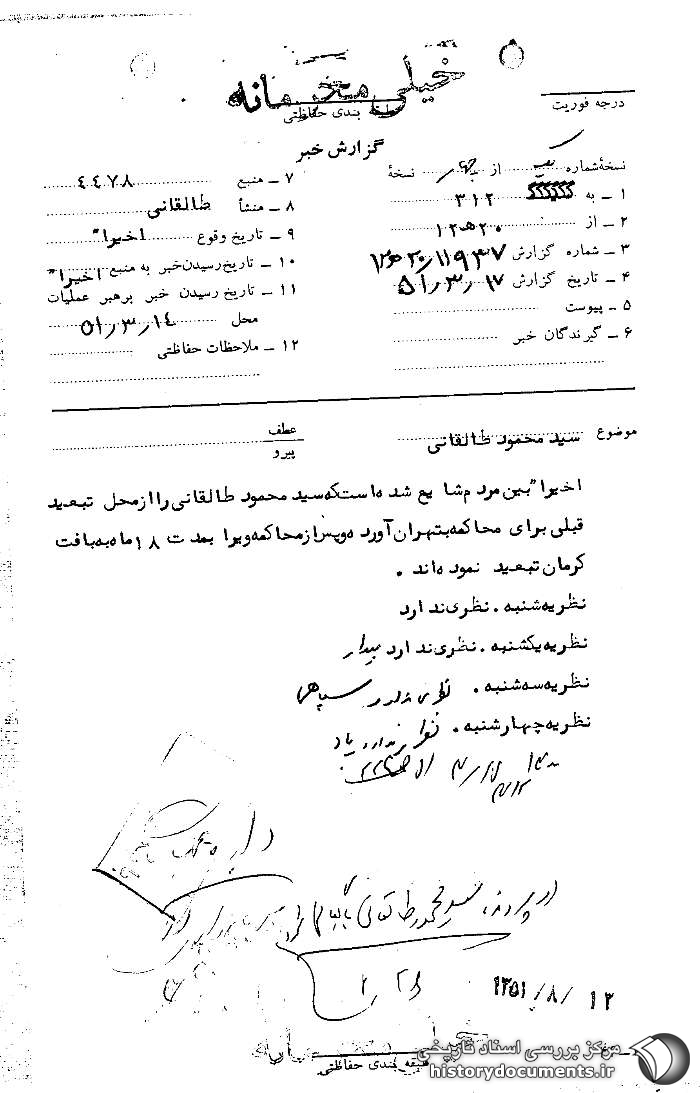 خیلی محرمانه
طبقه بندی حفاظتی
درجه فوریت
گزارش خبر
نسخهٔ شماره از چهار نسخهٔ
۱ ـ به ۳۱۲
۲ ـ از ۲۰ ه‍ ۱۲
۳ ـ شماره گزارش ۱۱۹۳۷/۲۰ ه‍ ۱۲
۴ ـ تاریخ گزارش ۵۱/۳/۱۷
۵ ـ پیوست
۶ ـ گیرندگان خبر
۷ ـ منبع ٤٤٧٨
۸ ـ منشأ طالقانی
۹ ـ تاریخ وقوع اخیرا"
۱۰ ـ تاریخ رسیدن خبر به منبع اخیرا"
۱۱ ـ تاریخ رسیدن خبر برهبر عملیات
محل ۵۱/۳/۱٤
۱۲ ـ ملاحظات حفاظتی
موضوع سید محمود طالقانی
عطف
پیرو
اخیرا" بین مردم شایع شده است که سید محمود طالقانی را از محل تبعید
قبلی برای محاکمه بتهران آورده و پس از محاکمه ویرا بمدت ۱۸ ماه به بافت
کرمان تبعید نموده اند .
نظریه شنبه . نظری ندارد
نظریه یکشنبه . نظری ندارد بیدار
نظریه سه شنبه . نظری ندارد سپاهی
نظریه چهارشنبه . نظری ندارد
در پرونده سید محمود طالقانی بایگانی
۱۳۵۱/۸/۱۳
خیلی محرمانه
طبقه بندی حفاظتی
مرکز بررسی اسناد تاریخی
historydocuments.ir